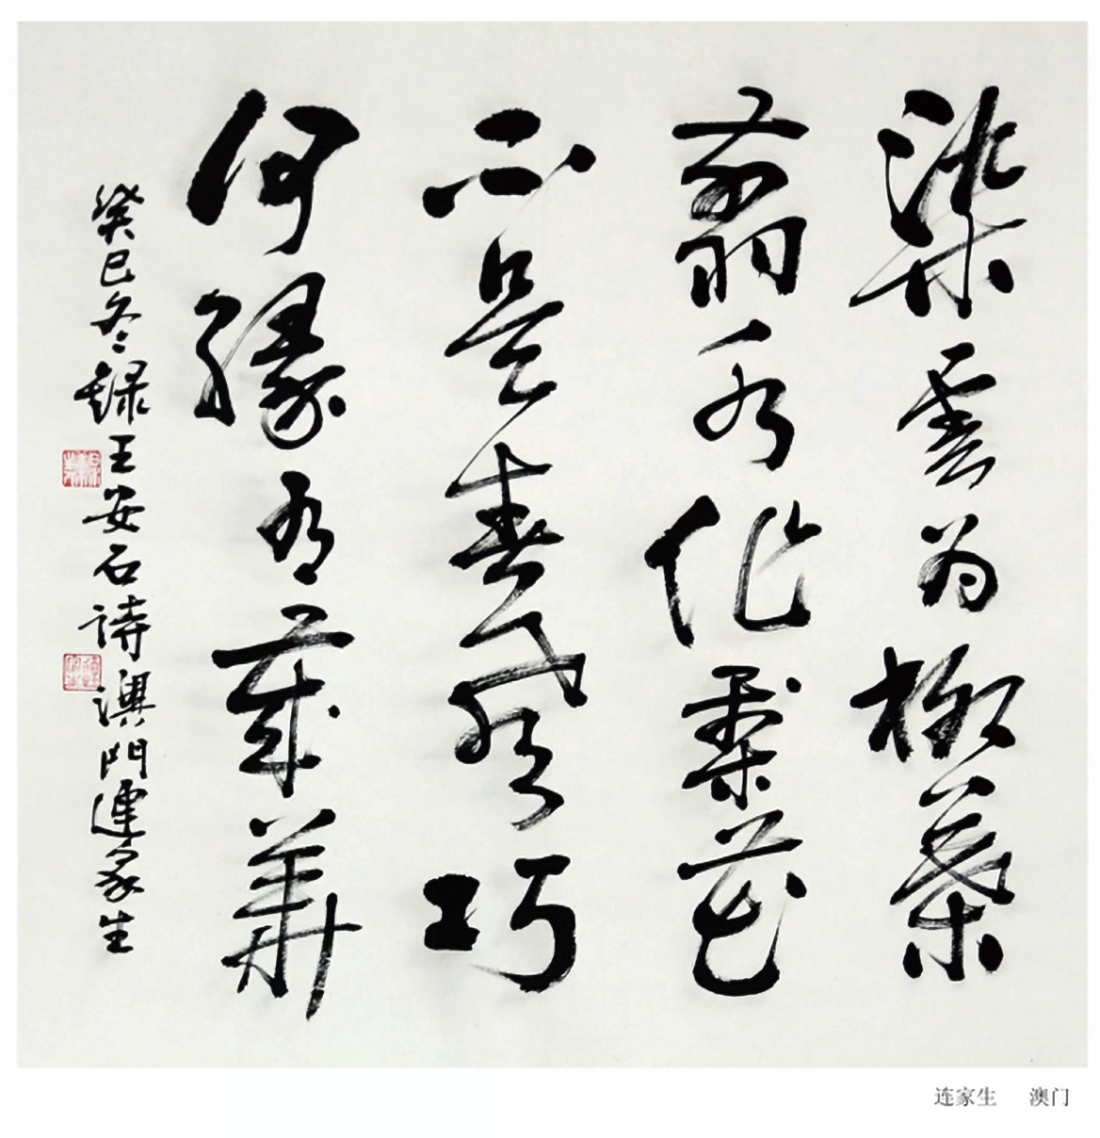 染雲为柳葉
剪水作梨花
不是春风巧
何缘有歲華
癸巳冬録王安石詩澳門連家生
连家生 澳门